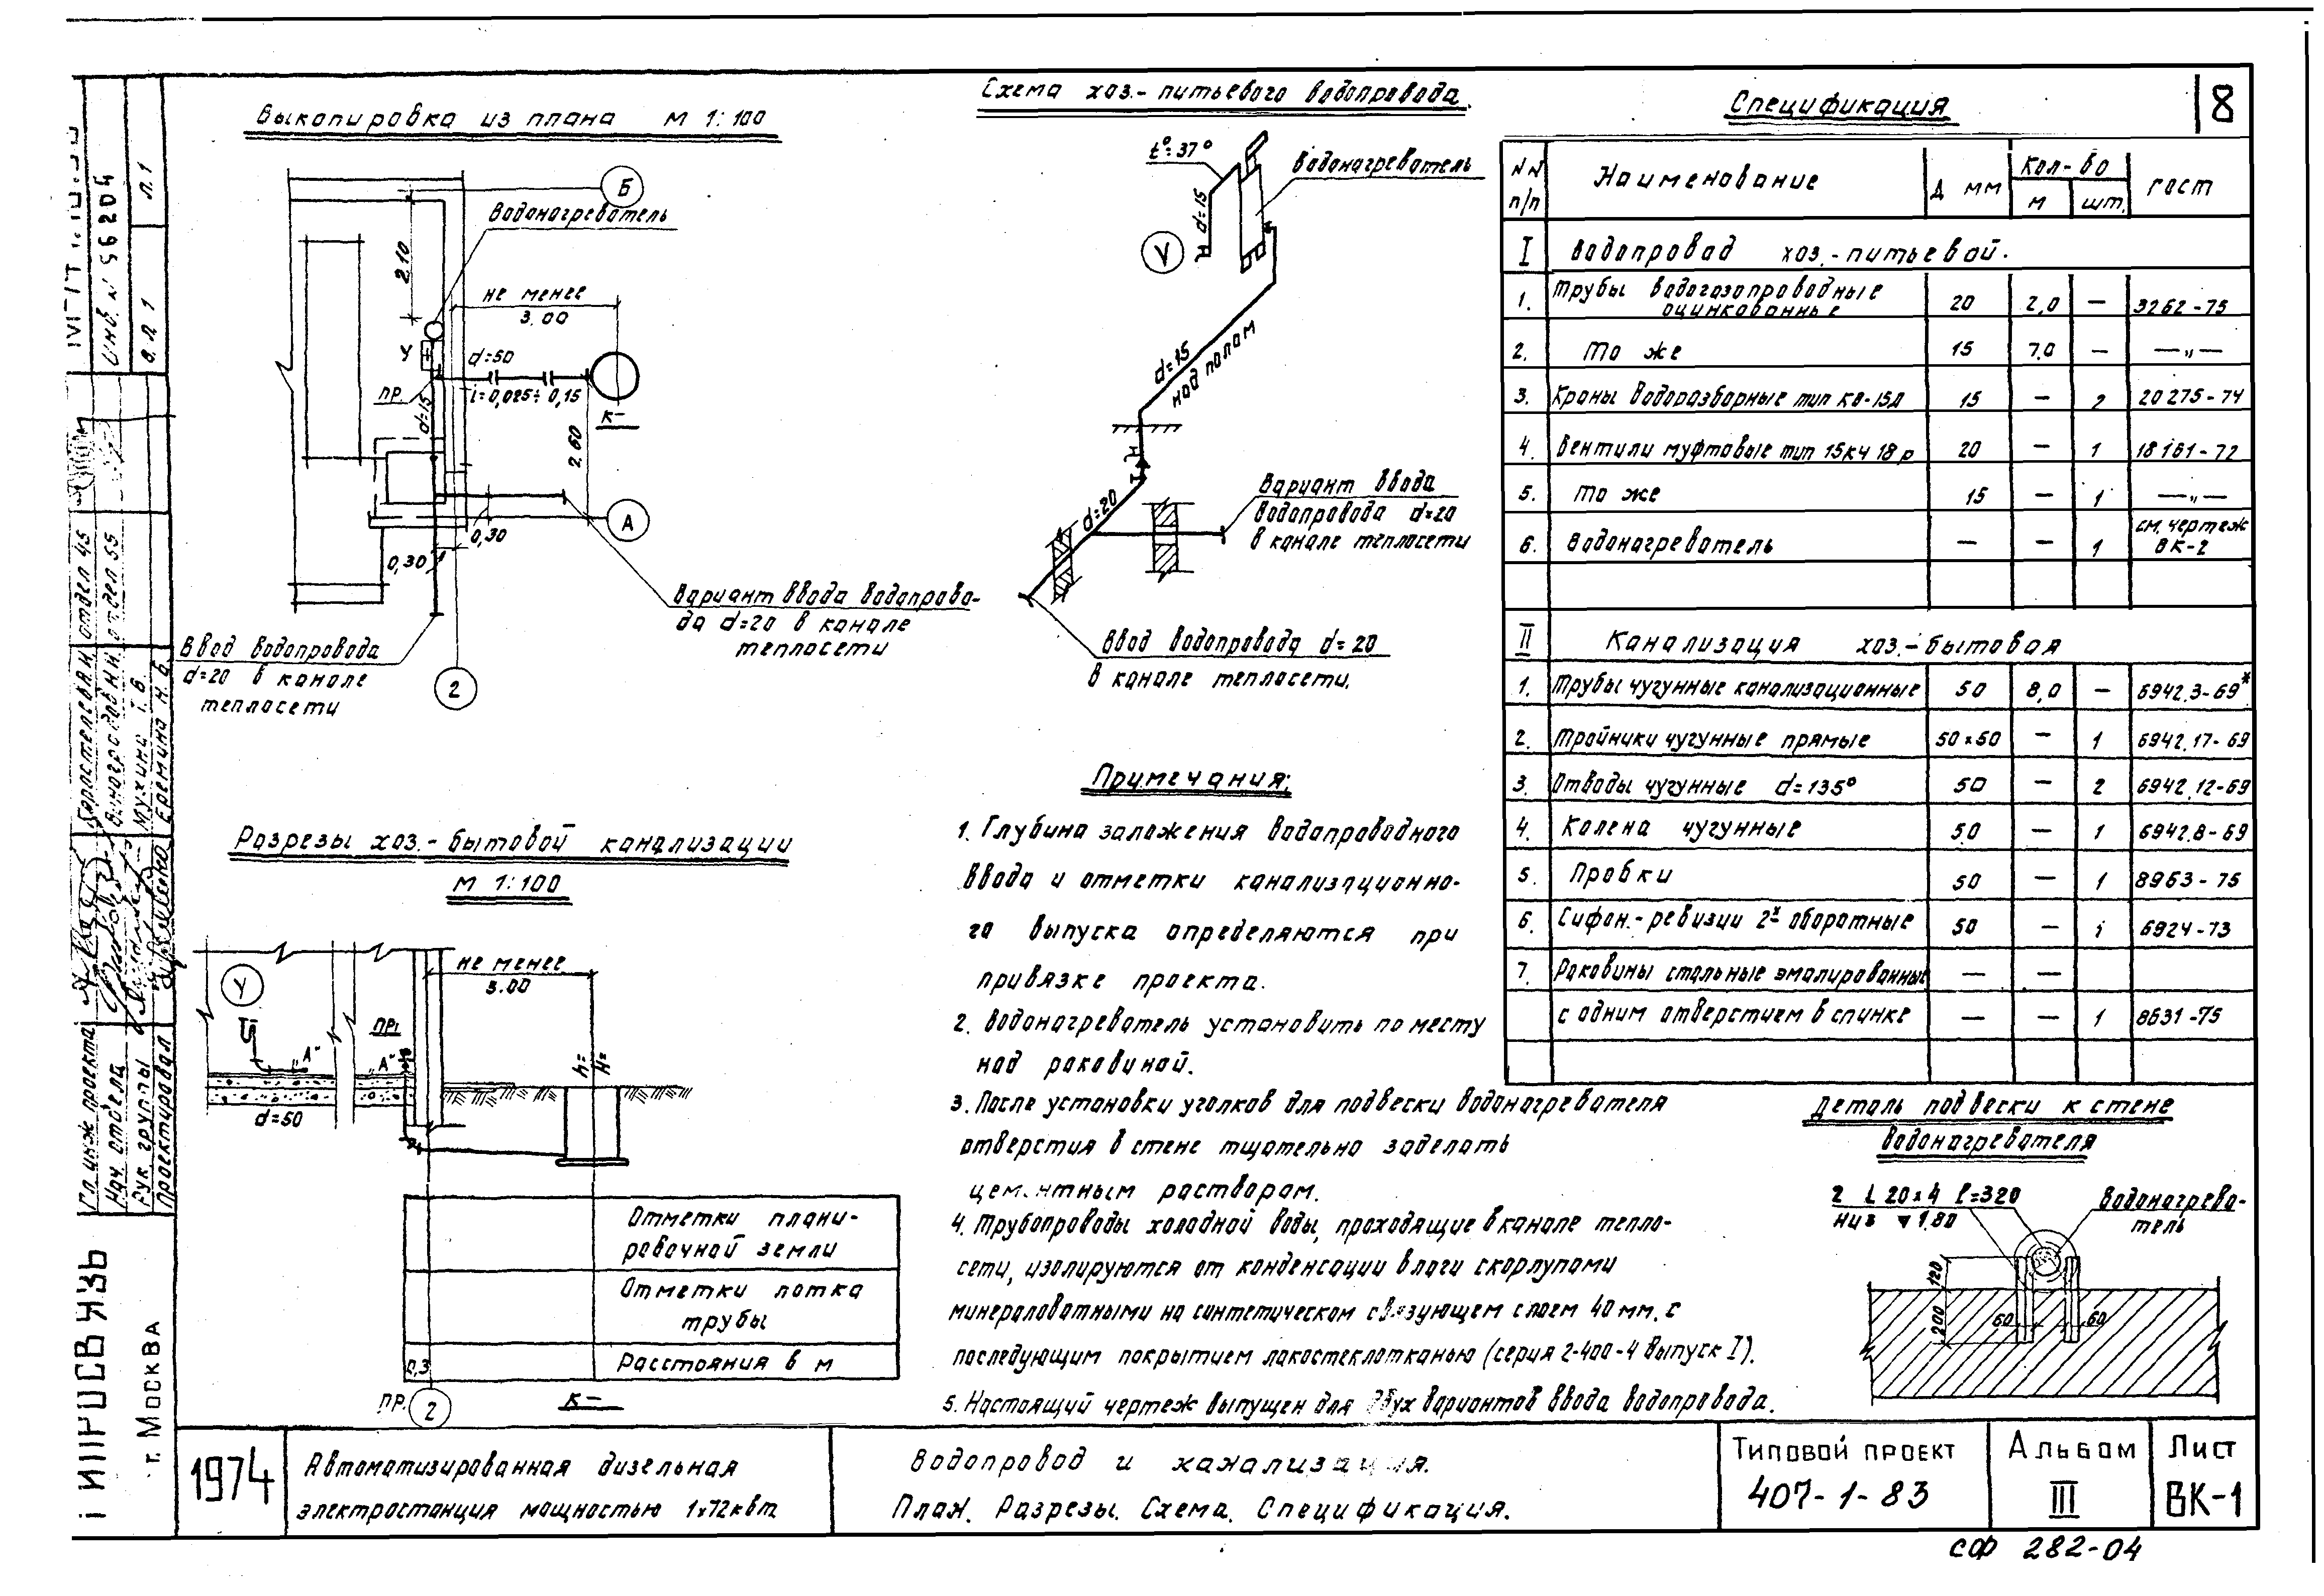 8
Выкопировка из плана М 1:100
Б
Водонагреватель
2.10
не менее
3.00
У
d=50
ПР.
i=0,025÷0,15
К-
d=15
2.60
А
0,30
0,30
Вариант ввода водопрово-
да d=20 в канале
теплосети
Ввод водопровода
d=20 в канале
теплосети
2
Схема хоз.-питьевого водопровода.
t°=37°
Водонагреватель
d=15
У
d=15
над полом
d=20
Вариант ввода
водопровода d=20
в канале теплосети
Ввод водопровода d=20
в канале теплосети.
Спецификация
NN п/п Наименование Д мм Кол-во м шт. гост
I Водопровод хоз.-питьевой.
1. Трубы водогазопроводные оцинкованные 20 2,0 — 3262-75
2. То же 15 7.0 — —„—
3. Краны водоразборные тип КВ-15Д 15 — 2 20275-74
4. Вентили муфтовые тип 15кч 18р 20 — 1 18161-72
5. То же 15 — 1 —„—
6. Водонагреватель — — 1 см. чертеж ВК-2
II Канализация хоз.-бытовая
1. Трубы чугунные канализационные 50 8,0 — 6942.3-69*
2. Тройники чугунные прямые 50x50 — 1 6942.17-69
3. Отводы чугунные d=135° 50 — 2 6942.12-69
4. Колена чугунные 50 — 1 6942.8-69
5. Пробки 50 — 1 8963-75
6. Сифон.-ревизии 2х оборотные 50 — 1 6924-73
7. Раковины стальные эмалированные — —
с одним отверстием в спинке — — 1 8631-75
Примечания:
1. Глубина заложения водопроводного
ввода и отметки канализационно-
го выпуска определяются при
привязке проекта.
2. Водонагреватель установить по месту
над раковиной.
3. После установки уголков для подвески водонагревателя
отверстия в стене тщательно заделать
цементным раствором.
4. Трубопроводы холодной воды, проходящие в канале тепло-
сети, изолируются от конденсации влаги скорлупами
минераловатными на синтетическом связующем слоем 40 мм. с
последующим покрытием лакостеклотканью (серия 2-400-4 выпуск I).
5. Настоящий чертеж выпущен для двух вариантов ввода водопровода.
Разрезы хоз.-бытовой канализации
М 1:100
У
не менее
3.00
ПР.
„А"
„А"
h=
H=
d=50
Отметки плани-
ровочной земли
Отметки лотка
трубы
0,3 Расстояния в м
ПР.
2
К-
Деталь подвески к стене
водонагревателя
2 L 20x4 l=320
низ 1.80
Водонагрева-
тель
120
200
60
60
1974
Автоматизированная дизельная
электростанция мощностью 1x72квт
Водопровод и канализация.
План. Разрезы. Схема. Спецификация.
Типовой проект
407-1-83
Альбом
III
Лист
ВК-1
СФ 282-04
Инв. N 56204
л. 1
в. л 1
отдел 45
отдел 55
Мухина Т. В
Еремина Н. Б.
Гл. инж проекта
Нач отдела
Рук. группы
Проектировал
г. Москва